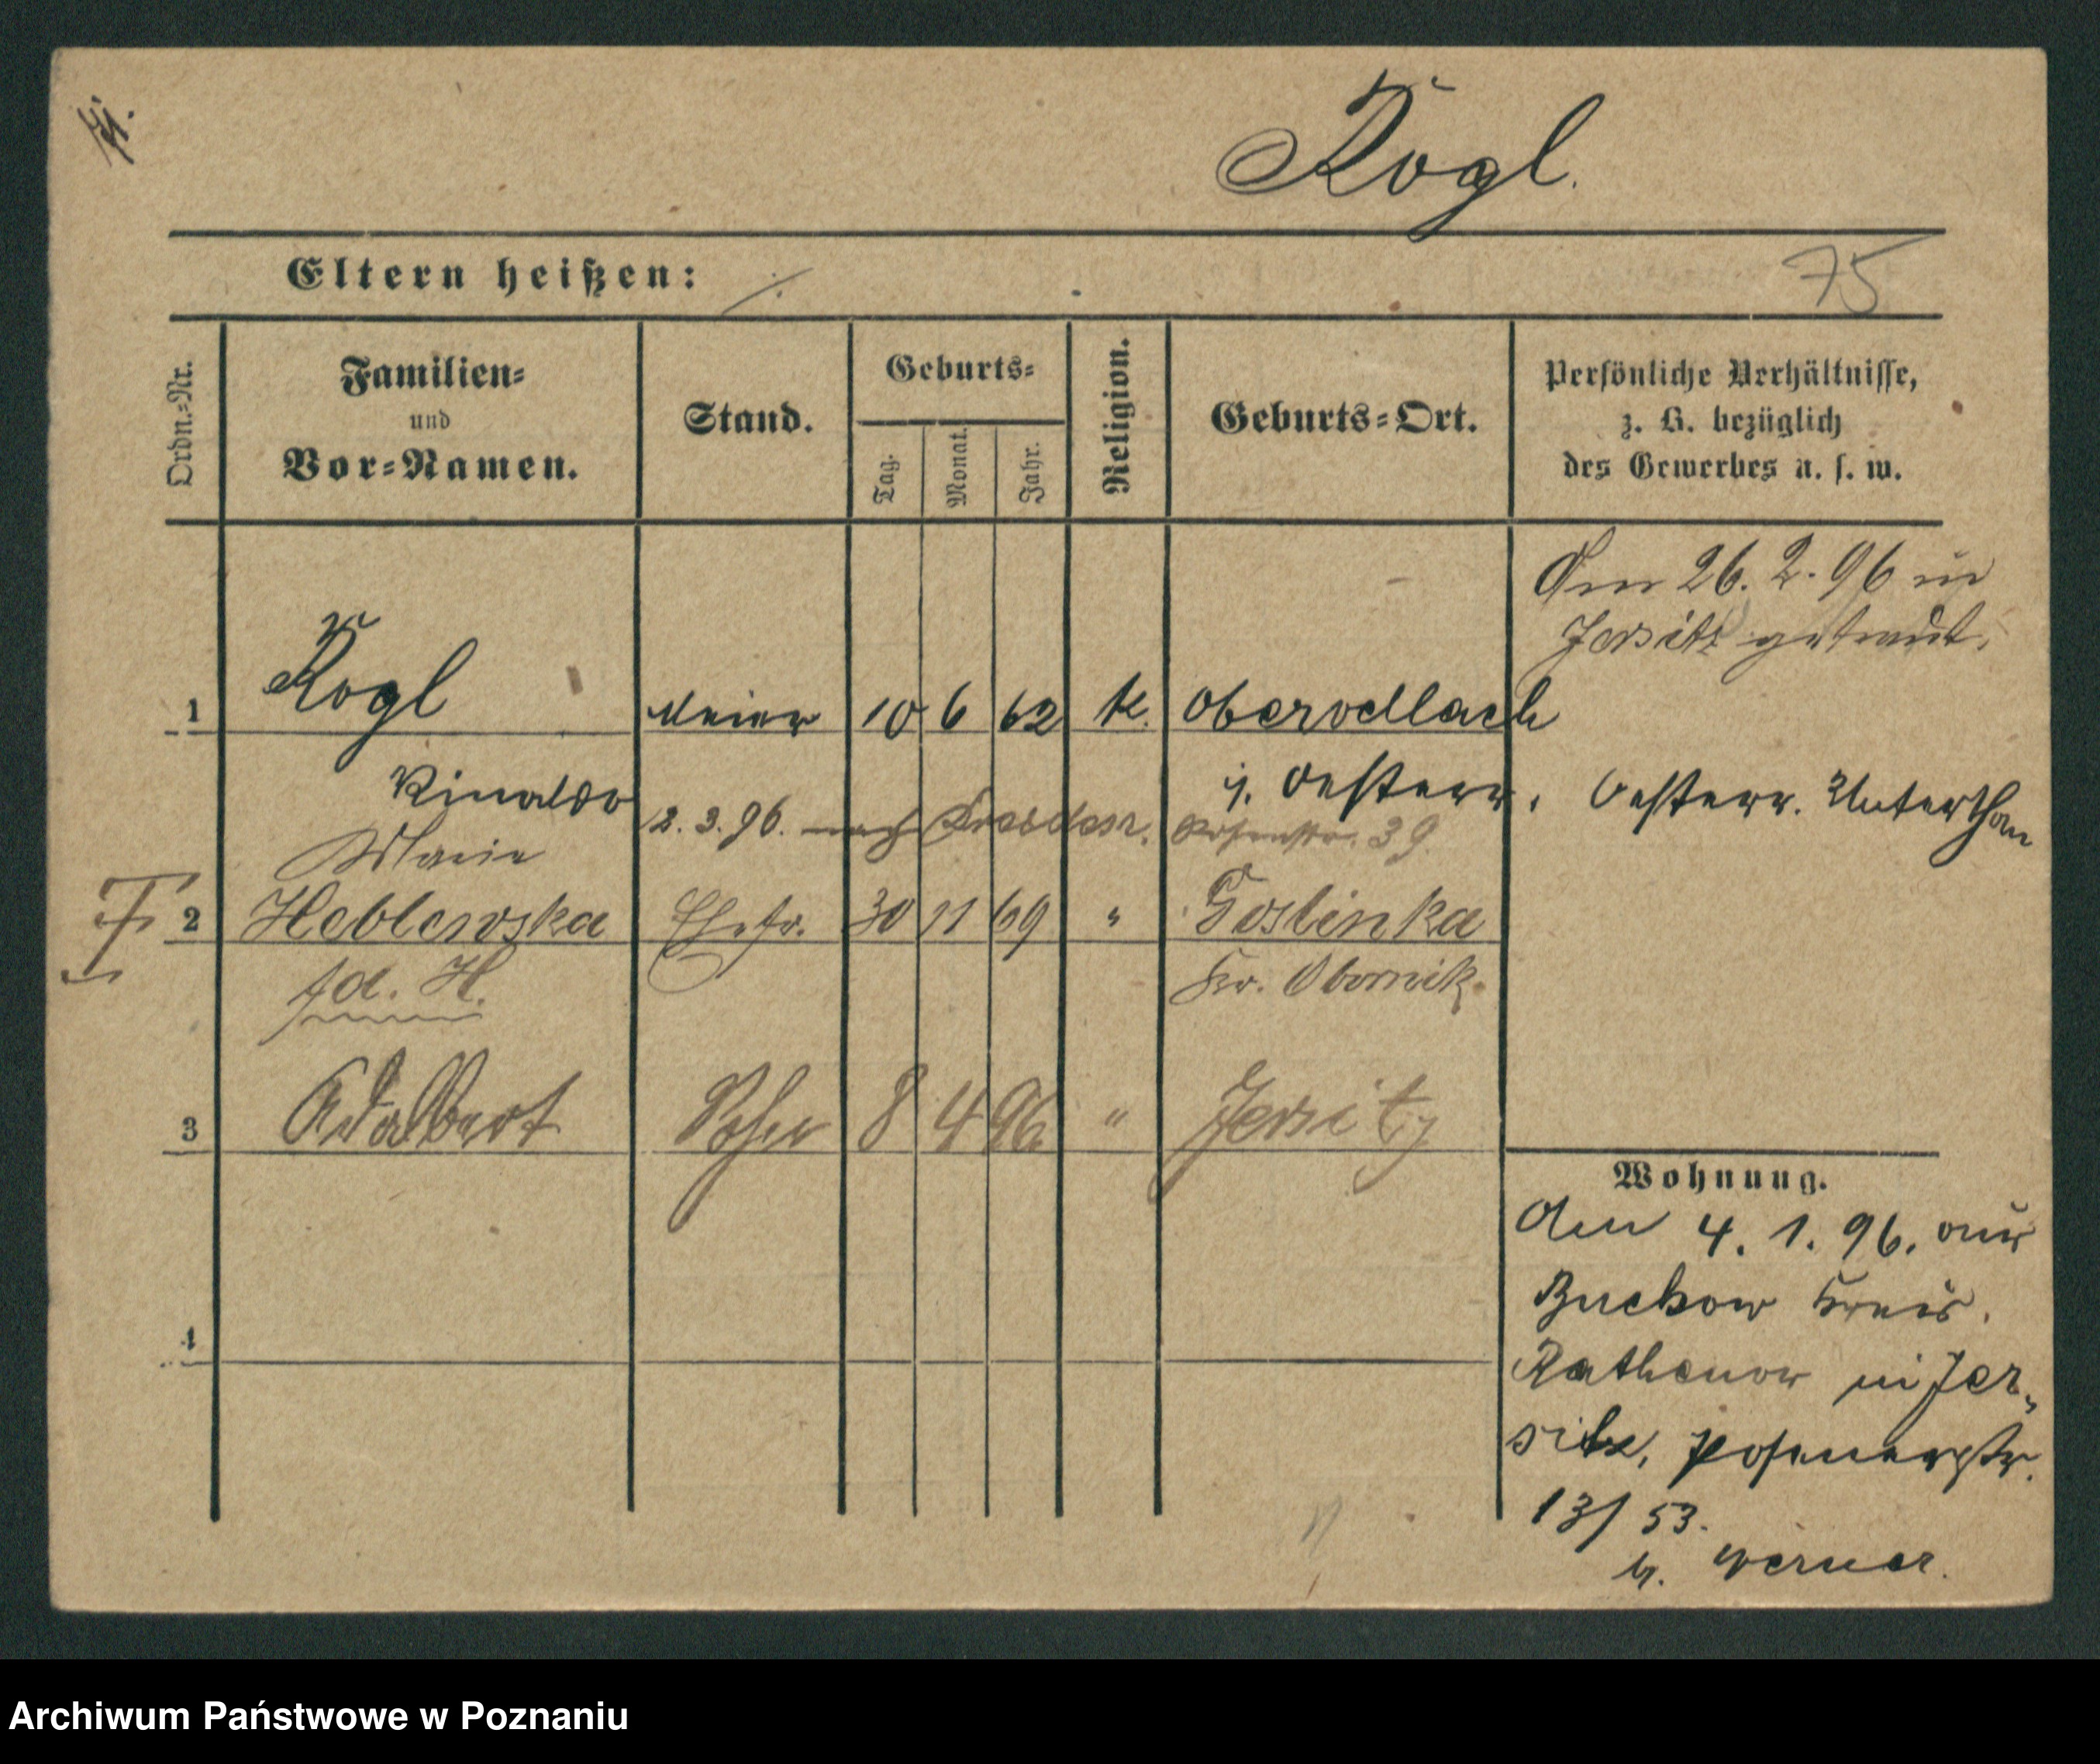 Kogl.
Eltern heißen: ./.
75
Ordn.=Nr.
Familien=
und
Vor=Namen.
Stand.
Geburts=
Tag.
Monat.
Jahr.
Religion.
Geburts=Ort.
Persönliche Verhältnisse,
z. B. bezüglich
des Gewerbes u. s. w.
Am 26. 2. 96 in
Jersitz getraut.
1 Kogl Meier 10 6 62 k. Obervellach
Rinaldo
i. Oesterr. Oesterr. Unterthan
2. 3. 96. nach Dresden. 39.
Marie
2 Heblewska Ehefr. 30 11 69 " Goslinka
Kr. Obornik.
3 Adalbert Sohn 8 4 96 " Jersitz
Wohnung.
Am 4. 1. 96. aus
Buckow Kreis.
Rathenow in Jer-
sitz, Posenerstr.
13/53.
b. Werner.
4
Archiwum Państwowe w Poznaniu